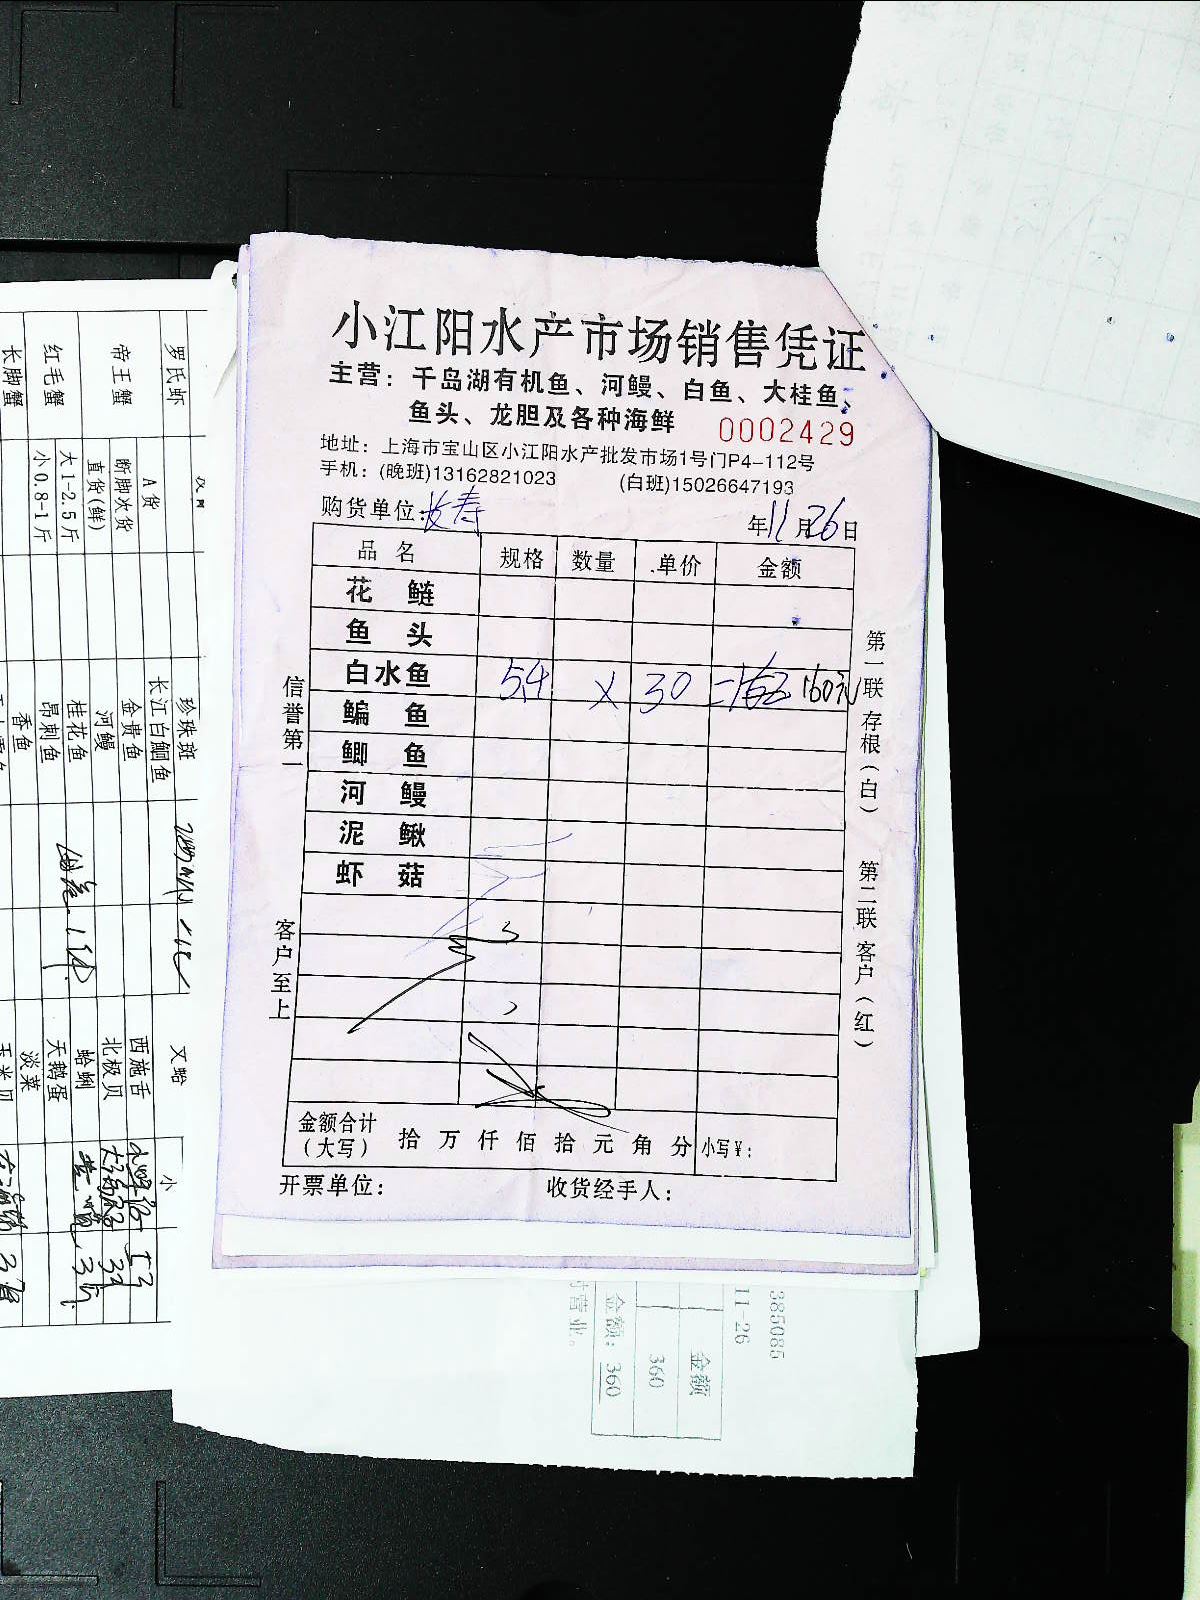 小江阳水产市场销售凭证
主营：千岛湖有机鱼、河鳗、白鱼、大桂鱼、
鱼头、龙胆及各种海鲜
0002429
地址：上海市宝山区小江阳水产批发市场1号门P4-112号
手机：(晚班)13162821023 (白班)15026647193
购货单位：长寿 年11月26日
品名 规格 数量 单价 金额
花鲢
鱼头
白水鱼 5.4 × 30 =162 160元
鳊鱼
鲫鱼
河鳗
泥鳅
虾菇
金额合计
（大写） 拾万仟佰拾元角分 小写￥：
开票单位： 收货经手人：
信誉第一
客户至上
第一联 存根（白）
第二联 客户（红）
罗氏虾
帝王蟹
红毛蟹
长脚蟹
A货
断脚次货
直货(鲜)
大1-2.5斤
小0.8-1斤
珍珠斑
长江白鮰鱼
金贵鱼
河鳗
桂花鱼
昂刺鱼
香鱼
西施舌
北极贝
蛤蜊
天鹅蛋
淡菜
小
385085
11-26
金额
360
金额：360
营业。